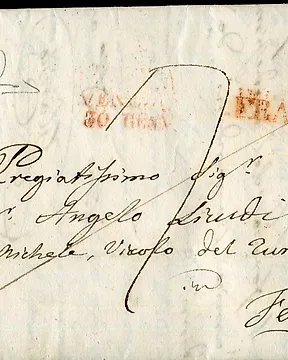 VENEZIA
30 GEN
FRA
Pregiatissimo Sig.r
Angelo
Michele, Vicolo del
in
Fe